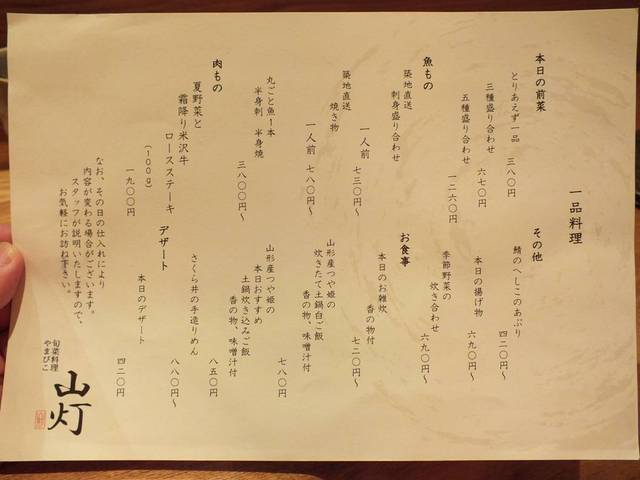 一品料理
本日の前菜
とりあえず一品 三八〇円
三種盛り合わせ 六七〇円
五種盛り合わせ 一二六〇円
魚もの
築地直送
刺身盛り合わせ
一人前 七三〇円〜
築地直送
焼き物
一人前 七八〇円〜
丸ごと魚1本
半身刺 半身焼
三八〇〇円〜
肉もの
夏野菜と
霜降り米沢牛
ロースステーキ
(100g)
一九〇〇円
その他
鯖のへしこのあぶり
四二〇円〜
本日の揚げ物
六九〇円〜
季節野菜の
炊き合わせ
六九〇円〜
お食事
本日のお雑炊
香の物付
七二〇円〜
山形産つや姫の
炊きたて土鍋白ご飯
香の物、味噌汁付
七八〇円
山形産つや姫の
本日おすすめ
土鍋炊き込みご飯
香の物、味噌汁付
八五〇円
さくら井の手造りめん
八八〇円〜
デザート
本日のデザート
四二〇円
なお、その日の仕入れにより
内容が変わる場合がございます。
スタッフが説明いたしますので、
お気軽にお訪ね下さい。
旬菜料理
やまびこ
山灯